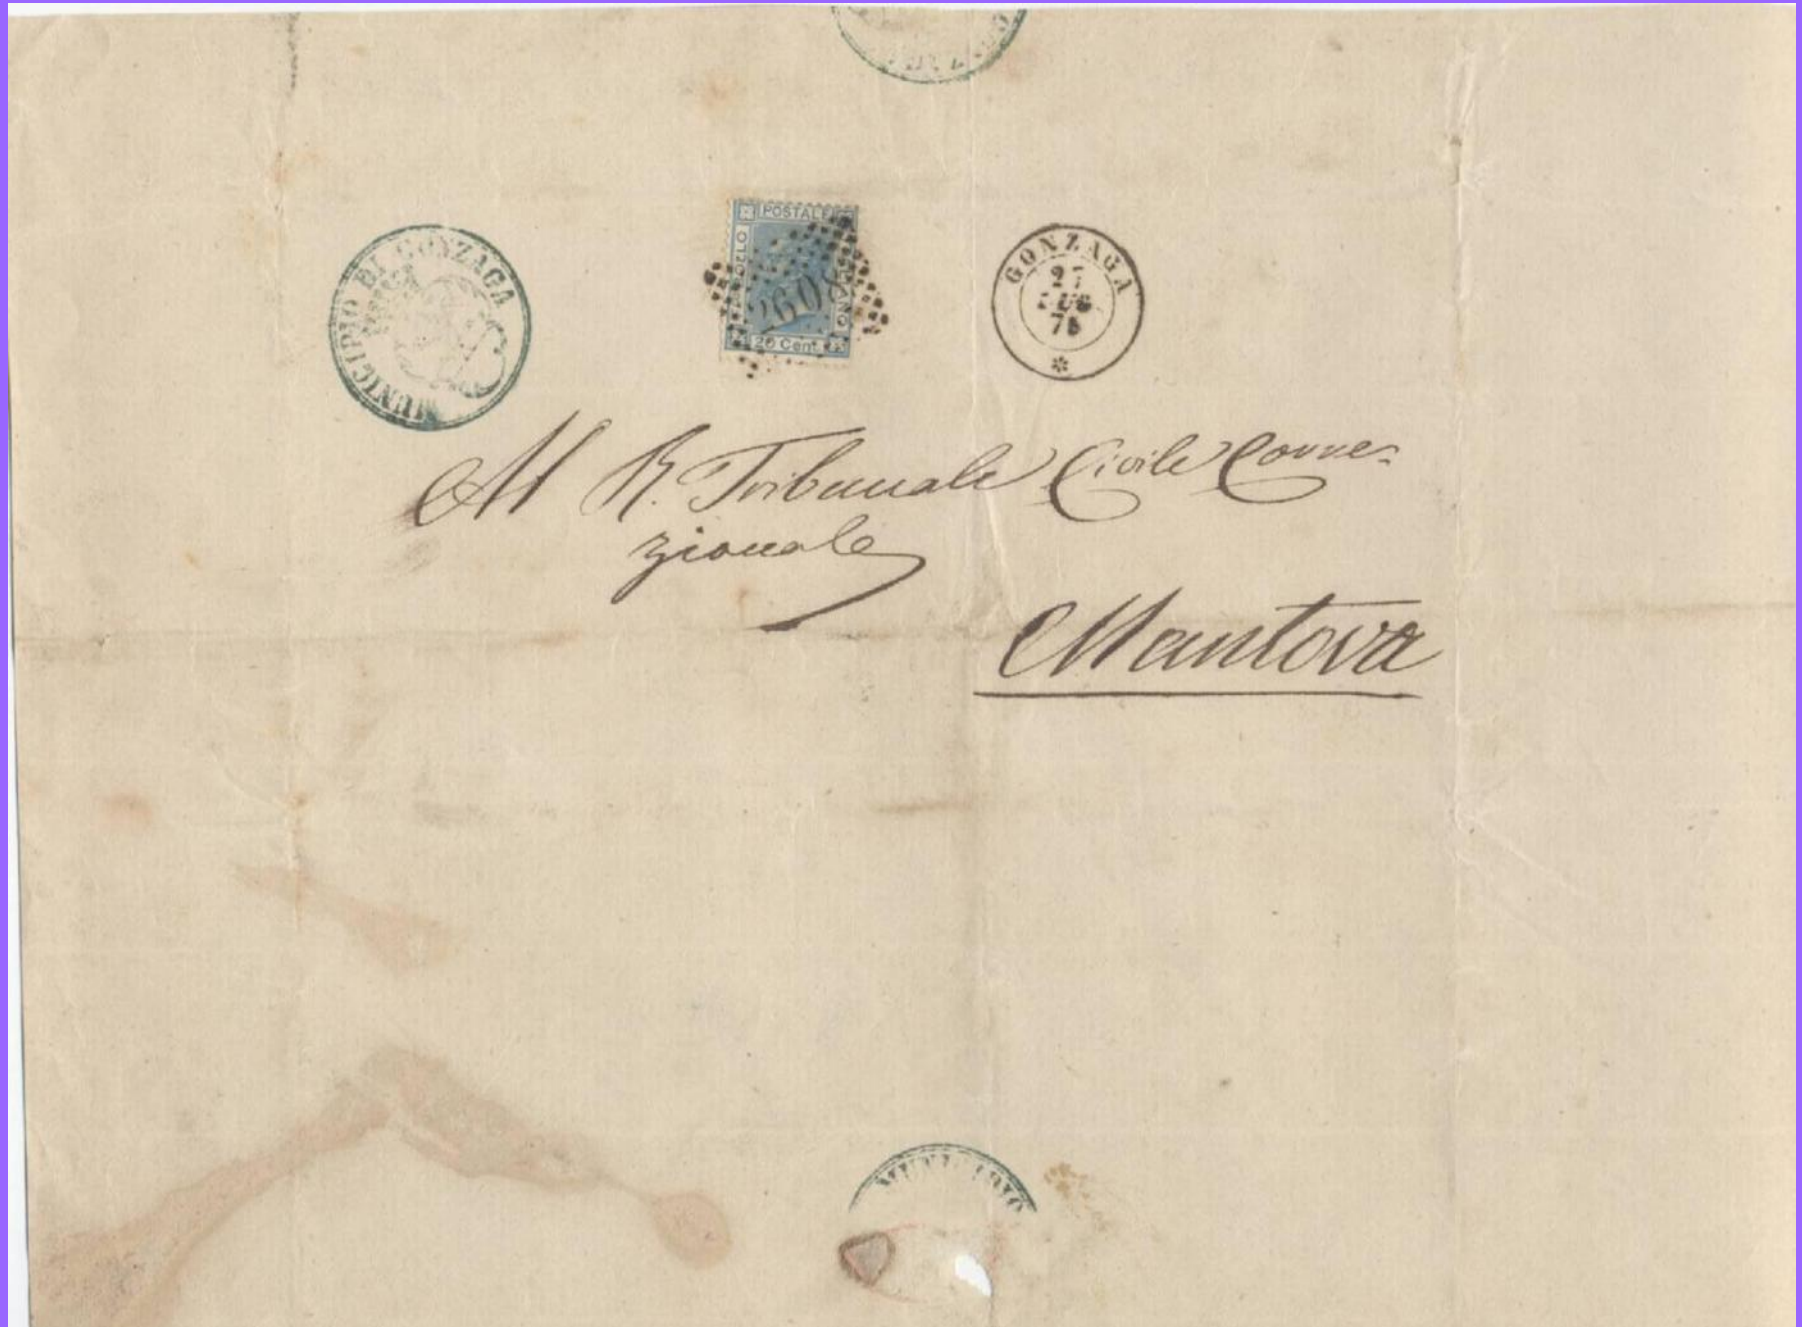 MUNICIPIO DI GONZAGA
POSTALE
20 Cent
2608
GONZAGA
27
LUG
75
Al R. Tribunale Civile Corre=
zionale
Mantova
MUNICIPIO